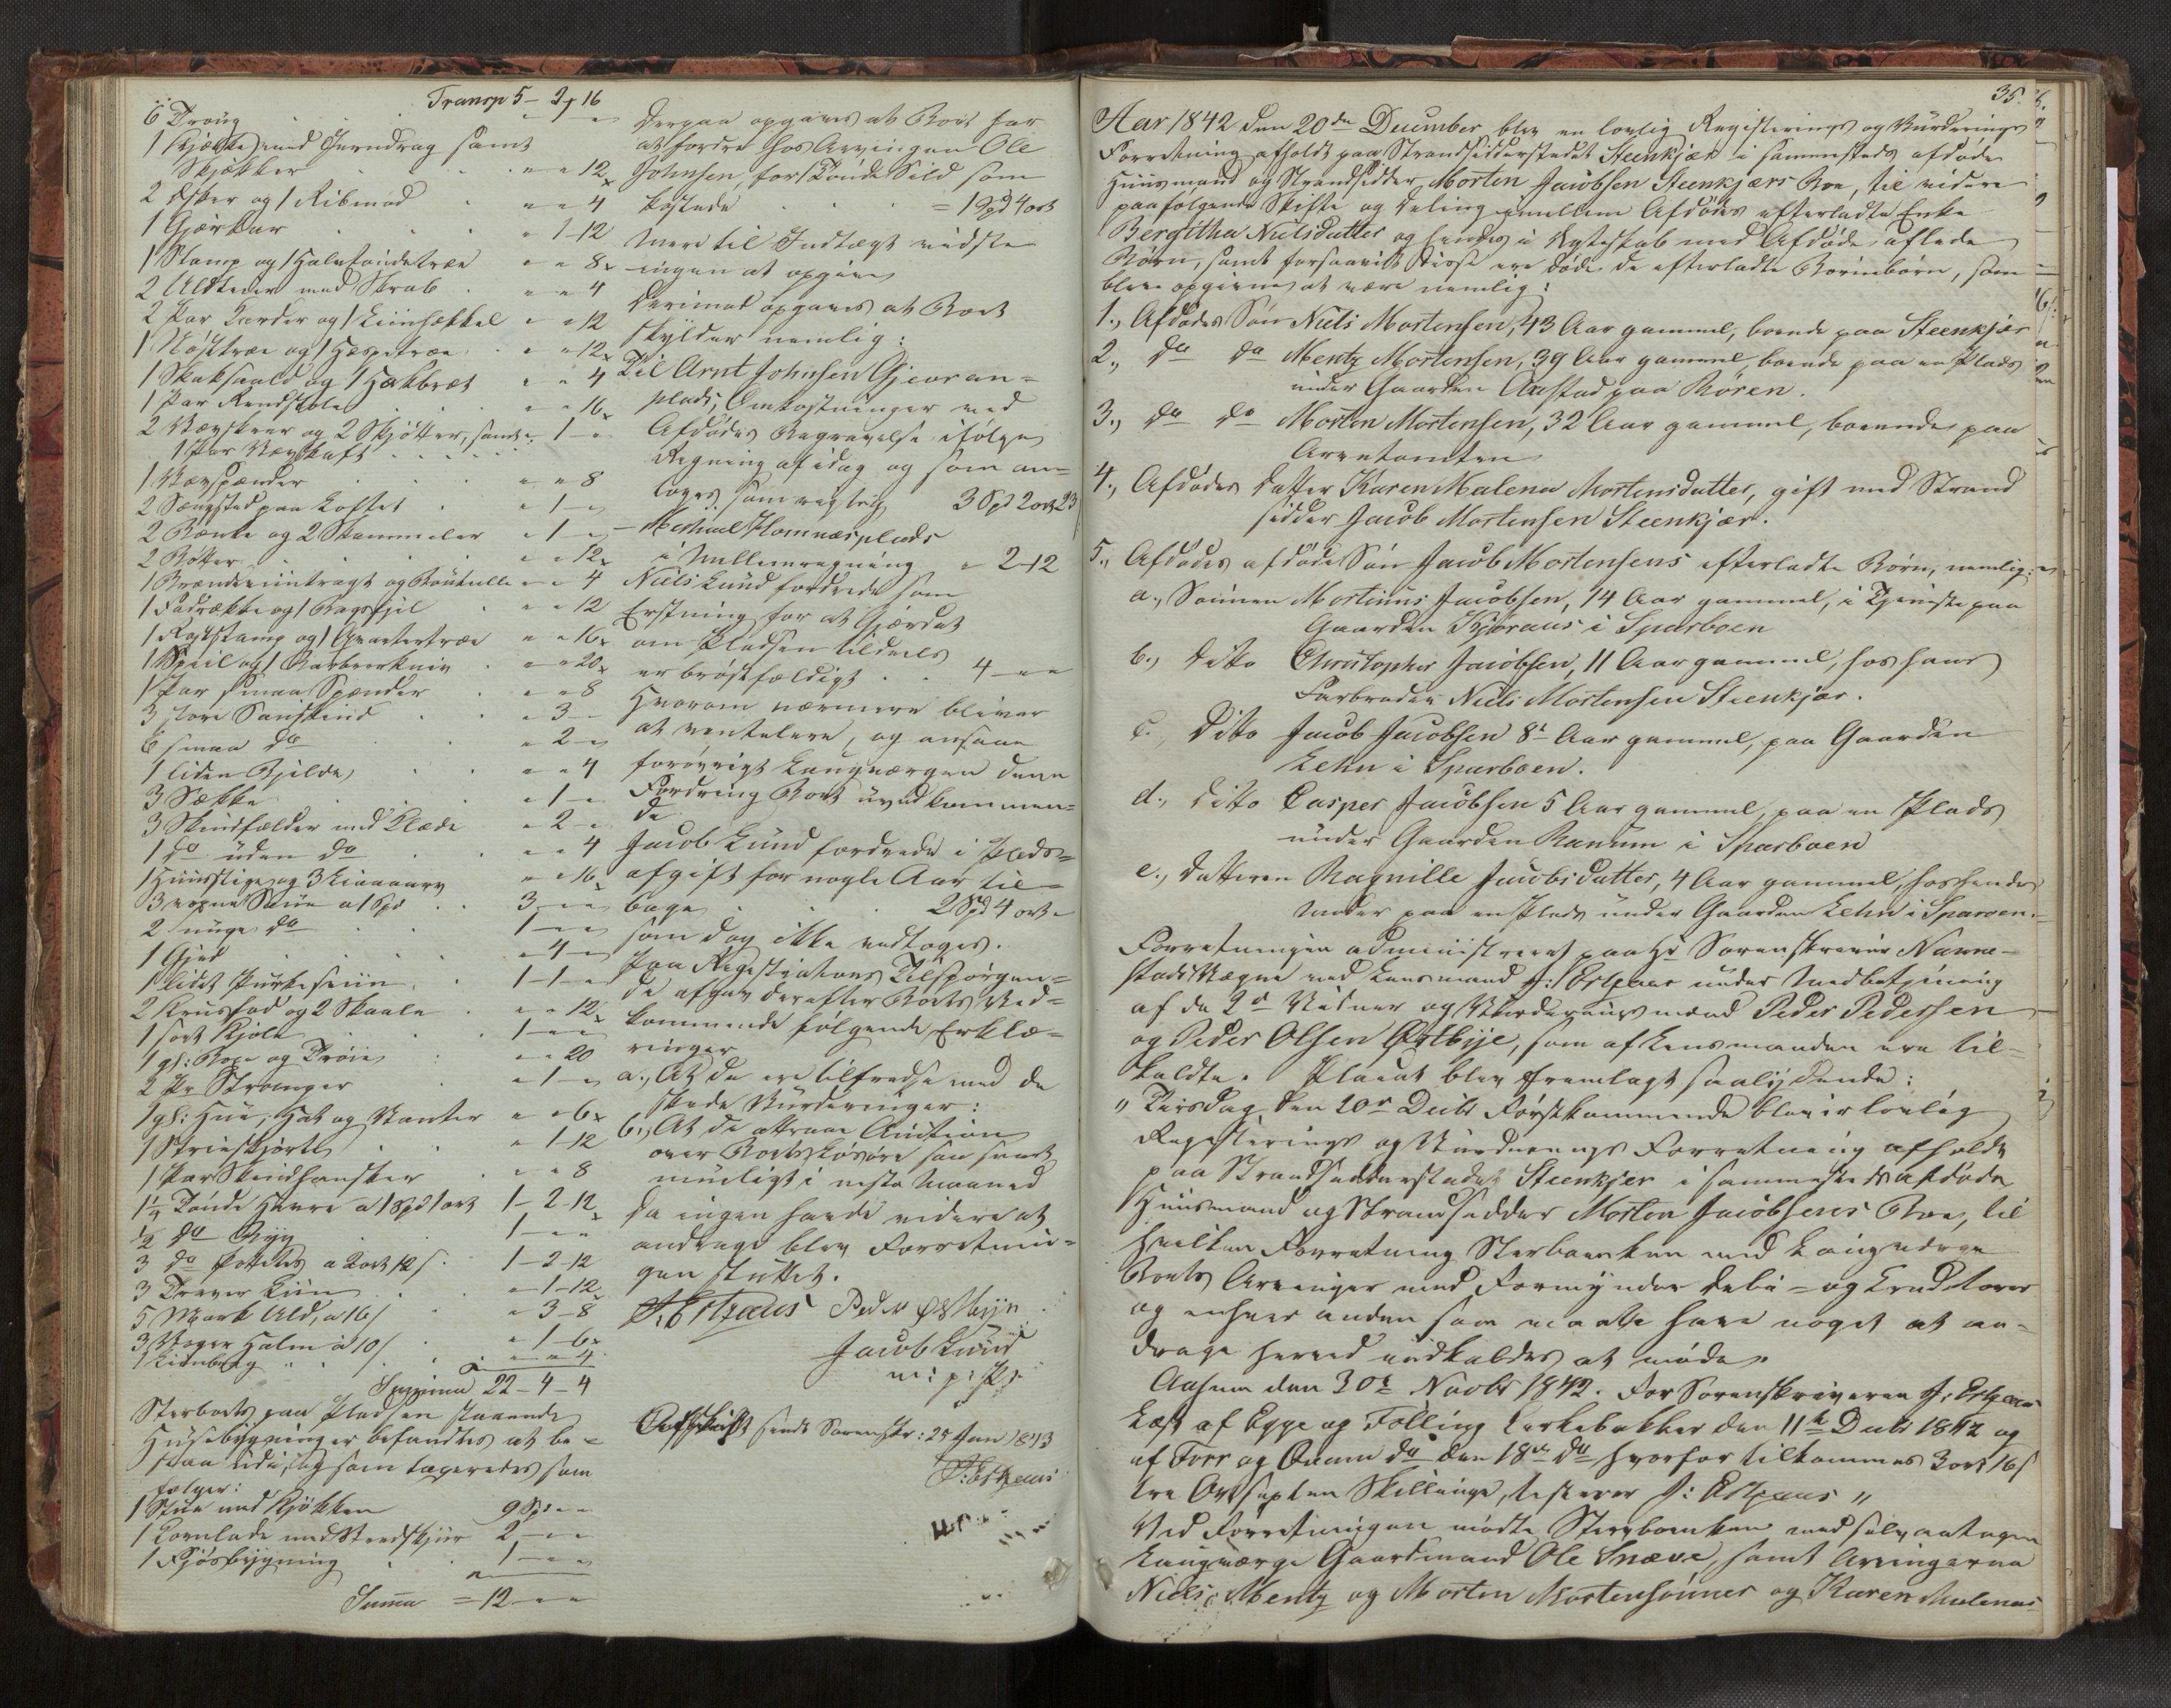 Transp 5 - 2 - 16
6 Troug - 1 -
1 Kjække med Jerndrag samt
Skjækker - - 12
2 Esker og 1 Ribmad - - 4
1 Gjærkar - 1 - 12
1 Stamp og 1 Halvtøndetræe - - 8
2 med Skrab - - 4
2 Par Karder og 1 Liinhækkel - - 12
1 Nøstetræe og 1 Hespetræe - - 12
1 og 1 Hakbræt - - 4
1 Par Rendstole - - 16
2 Vævskeer og 2 Skjøtter, samt 1 -
1 Par Vævskaft
1 Vævspænder - - 8
2 Sængsted paa Loftet - 1 -
2 Bænke og 2 Skammeler - 1 -
2 Bøtter - - 12
1 Brændeviintragt og - - 4
1 og 1 Bagefjel - - 12
1 og 1 Qvartertræe - - 16
1 Speil og 1 Barbeerkniv - - 20
1 Par smaa Spænder - - 8
3 store Saueskind - 3 -
6 smaa do - 2 -
1 liden Bjelde - - 4
3 Sække - 1 -
3 Skindfælder med Klæde - 2 -
1 do uden do - - 4
1 Huusstige og 3 - - 16
3 voxne Sauer a 1 Spd 3 - -
2 unge do 1 - -
1 Gjed - 4 -
1 lidet 1 - 1 -
2 Kruusfad og 2 Skaale - - 12
1 sort Kjole 1 - -
1 gl: Buxe og Trøie - - 20
2 Pr Strømper - 1 -
1 gl: Hue, Hat og Vanter - - 6
1 Strieskjorte - 1 - 12
1 Par Skindhansker - - 8
1¼ Tønde Havre a 1 Spd 1 ort 1 - 2 - 12
½ do Byg 1 - -
3 do Potetes a 2 ort 12 s 1 - 2 - 12
3 Traver Liin - 1 - 12
5 Mark Uld, a 16 s - 3 - 8
3 Voger Halm a 10 s - 1 - 6
1 - - 4
Summa 22 - 4 - 4
Sterboets paa Pladsen staaende
Huusebygninger befandtes at be-
staa udi, og som taxeredes som
følger:
1 Stue med Kjøkken 9 Spd - -
1 Kornlade med Veedskjur 2 - -
1 Fjøsbygning 1 - -
Summa = 12 - -
Derpaa opgaves at Boet har
at fordre hos Arvingen Ole
Johnsen, for 1 Tønde Sild som
kostede = 1 Spd 4 ort
Mere til Indtægt vidste
ingen at opgive
Derimod opgaves at Boet
skylder nemlig:
Til Arnt Johnsen Gjevran-
plads, Omkostninger ved
Afdødes Begravelse ifølge
Regning af idag og som an-
toges som rigtig 3 Spd 2 ort 23 s
- Michael Homnæsplads
i Mellemregning - 2 - 12
Niels Lund fordrede som
Erstning for at Gjærdet
om Pladsen tildeels
er brøstfældigt 4 - -
Hvorom nærmere bliver
at ventelere, og ansaae
forøvrigt Laugværgen denne
Fordring Boet uvedkommen-
de
Jacob Lund fordrede i Plads-
afgift for nogle Aar til-
bage 2 Spd 4 ort -
som dog ikke vedtoges.
Paa Registrators Tilspørgen-
de afgav derefter Boets Ved-
kommende følgende Erklæ-
ringer
a., At de ere tilfredse med de
skede Vurderinger:
b., At de attraae Auction
over Boets Løsøre saa snart
muligt i neste Maaned
Da ingen havde videre at
andrage blev Forretnin-
gen sluttet.
J. Estpaus Peder Østbye
Jacob Lund
m: p: P:
Afskrift sendt Sorenskr: 25 Jan 1843
J: Estpaus
35.
Aar 1842 den 20de December blev en lovlig Registerings og Vurderings
Forretning afholdt paa Strandsidderstedet Steenkjær i sammesteds afdøde
Huusmand og Strandsidder Morten Jacobsen Steenkjærs Boe, til videre
paafølgende Skifte og Deling imellem Afdødes efterladte Enke
Bergitha Nielsdatter og hendes i Ægteskab med Afdøde aflede
Børn, samt forsaavidt disse ere døde de efterladte Børnebørn, som
bleve opgivne at være nemlig:
1., Afdødes Søn Niels Mortensen, 43 Aar gammel, boende paa Steenkjær
2., do do Mentz Mortensen, 39 Aar gammel, boende paa en Plads
under Gaarden Aastad paa Røren.
3., do do Morten Mortensen, 32 Aar gammel, boende paa
Arentomten
4., Afdødes Datter Karen Malena Mortensdatter, gift med Strand
sidder Jacob Mortensen Steenkjær.
5., Afdødes afdøde Søn Jacob Mortensens efterladte Børn, nemlig:
a., Sønnen Mortinus Jacobsen, 14 Aar gammel, i Tjeneste paa
Gaarden Kjøraas i Sparboen
b., Ditto Christopher Jacobsen, 11 Aar gammel, hos hans
Farbroder Niels Mortensen Steenkjær.
c., Ditto Jacob Jacobsen 8t Aar gammel, paa Gaarden
Lehn i Sparboen.
d., Ditto Casper Jacobsen 5 Aar gammel, paa en Plads
under Gaarden Ranum i Sparboen
e., Datteren Ragnille Jacobsdatter, 4 Aar gammel, hos hendes
Moder paa en Plads under Gaarden Lehn i Sparboen.
Forretningen administreret paa Hr Sorenskriver Narve-
stads Vegne ved Lensmand J: Estpaus under Medbetjening
af de 2de Vidner og Vurderingsmænd Peder Pedersen
og Peder Olsen Østbye, som af Lensmanden ere til-
kaldte. Placat blev fremlagt saalydende:
"Tirsdag den 20de Decbr førstkommende bliver lovlig
Registerings og Vurderings Forretning afholdt
paa Strandsidderstedet Steenkjer i sammesteds afdøde
Huusmand og Strandsidder Morten Jacobsens Boe, til
hvilken Forretning Sterboenken med Laugværge
Boets Arvinger med Formynder Debi- og Creditorer
og enhver anden som maatte have noget at an-
drage herved indkaldes at møde.
Aasum den 30te Novbr 1842. For Sorenskriveren J: Estpaus
Læst af Egge og Følling Kirkebakker den 11te Decbr 1842 og
af For og Qvam do den 18de do hvorfor tilkommes 3 ort 16 s
tre Ort sexten Skillinge, testerer J: Estpaus"
Ved Forretningen mødte Sterboenken med selvantagen
Laugværge Gaardmand Ole Snæve, samt Arvingerne
Niels, Mentz og Morten Mortensønner og Karen Malenas